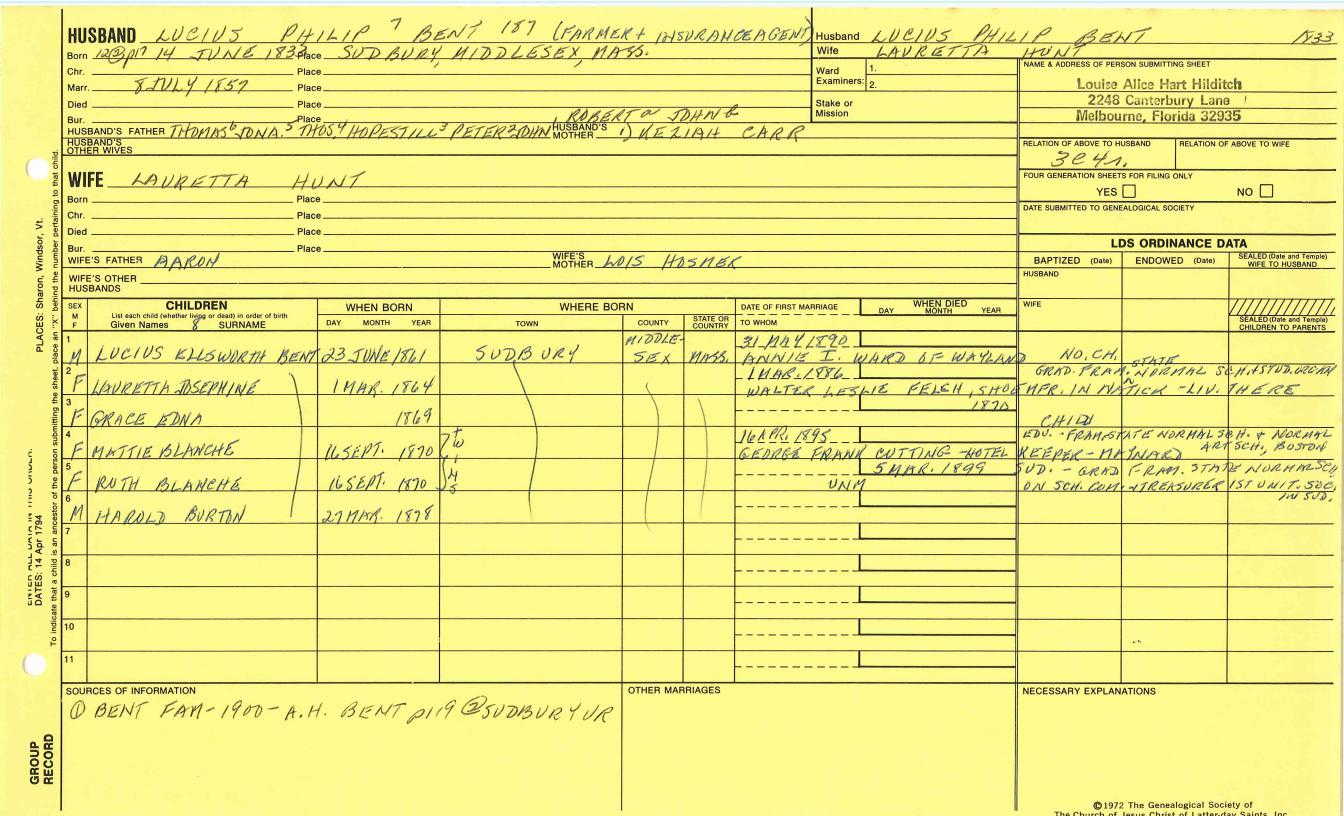 HUSBAND LUCIUS PHILIP 7 BENT 187 (FARMER + INSURANCE AGENT)
Born 14 JUNE 1833 Place SUDBURY, MIDDLESEX, MASS.
Chr. Place
Marr. 8 JULY 1857 Place
Died Place
Bur. Place ROBERT OR JOHN
HUSBAND'S FATHER THOMAS 6 JONA. 5 THOS 4 HOPESTILL 3 PETER 2 JOHN HUSBAND'S MOTHER 1) KEZIAH CARR
HUSBAND'S OTHER WIVES
Husband LUCIUS PHILIP BENT 1833
Wife LAURETTA HUNT
Ward Examiners: 1.
2.
Stake or Mission
NAME & ADDRESS OF PERSON SUBMITTING SHEET
Louise Alice Hart Hilditch
2248 Canterbury Lane
Melbourne, Florida 32935
RELATION OF ABOVE TO HUSBAND RELATION OF ABOVE TO WIFE
3C4r.
FOUR GENERATION SHEETS FOR FILING ONLY
YES NO
DATE SUBMITTED TO GENEALOGICAL SOCIETY
WIFE LAURETTA HUNT
Born Place
Chr. Place
Died Place
Bur. Place
WIFE'S FATHER AARON WIFE'S MOTHER LOIS HOSMER
WIFE'S OTHER HUSBANDS
LDS ORDINANCE DATA
BAPTIZED (Date) ENDOWED (Date) SEALED (Date and Temple) WIFE TO HUSBAND
HUSBAND
WIFE
SEALED (Date and Temple) CHILDREN TO PARENTS
SEX M F CHILDREN WHEN BORN WHERE BORN DATE OF FIRST MARRIAGE WHEN DIED
List each child (whether living or dead) in order of birth DAY MONTH YEAR
Given Names 8 SURNAME DAY MONTH YEAR TOWN COUNTY STATE OR COUNTRY TO WHOM
1 MIDDLE- 31 MAY 1890
M LUCIUS ELLSWORTH BENT 23 JUNE 1861 SUDBURY SEX MASS. ANNIE I. WARD OF WAYLAND NO. CH.
2 1 MAR. 1886 GRAD. FRAM. STATE NORMAL SCH. + STUD. ORGAN
F LAURETTA JOSEPHINE 1 MAR. 1864 WALTER LESLIE FELCH, SHOE MFR. IN NATICK - LIV. THERE
3 1870
F GRACE EDNA 1869 CHILD
4 16 APR. 1895 EDU. - FRAM. STATE NORMAL SCH. + NORMAL ART SCH., BOSTON
F MATTIE BLANCHE 16 SEPT. 1870 TWINS GEORGE FRANK CUTTING - HOTEL KEEPER - MAYNARD
5 5 MAR. 1899 SUD. - GRAD FRAM. STATE NORMAL SCH
F RUTH BLANCHE 16 SEPT. 1870 UNM ON SCH. COM. + TREASURER 1ST UNIT. SOC. IN SUD.
6
M HAROLD BURTON 27 MAR. 1878
7
8
9
10
11
SOURCES OF INFORMATION
① BENT FAM - 1900 - A.H. BENT p119 ② SUDBURY VR
OTHER MARRIAGES
NECESSARY EXPLANATIONS
©1972 The Genealogical Society of
The Church of Jesus Christ of Latter-day Saints, Inc.
PLACES: Sharon, Windsor, Vt.
DATES: 14 Apr 1794
To indicate that a child is an ancestor of the person submitting the sheet, place an "X" behind the number pertaining to that child.
GROUP RECORD